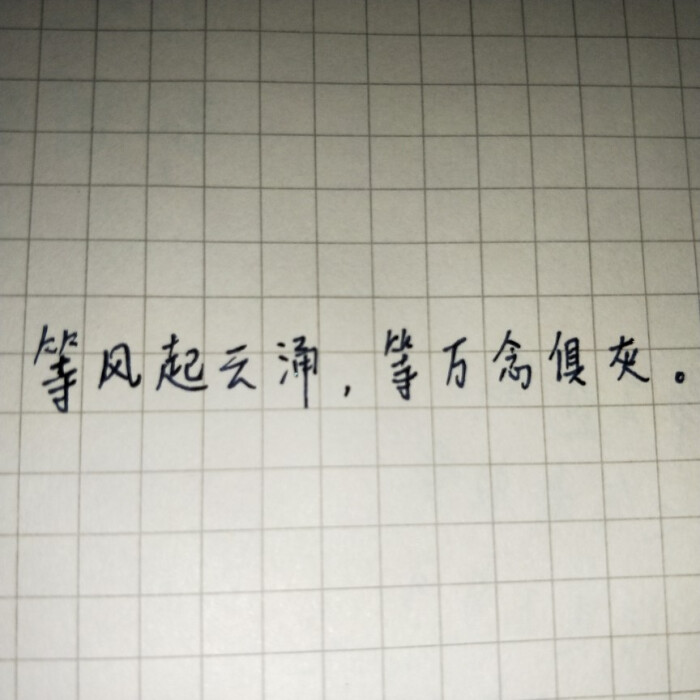 等风起云涌，等万念俱灰。